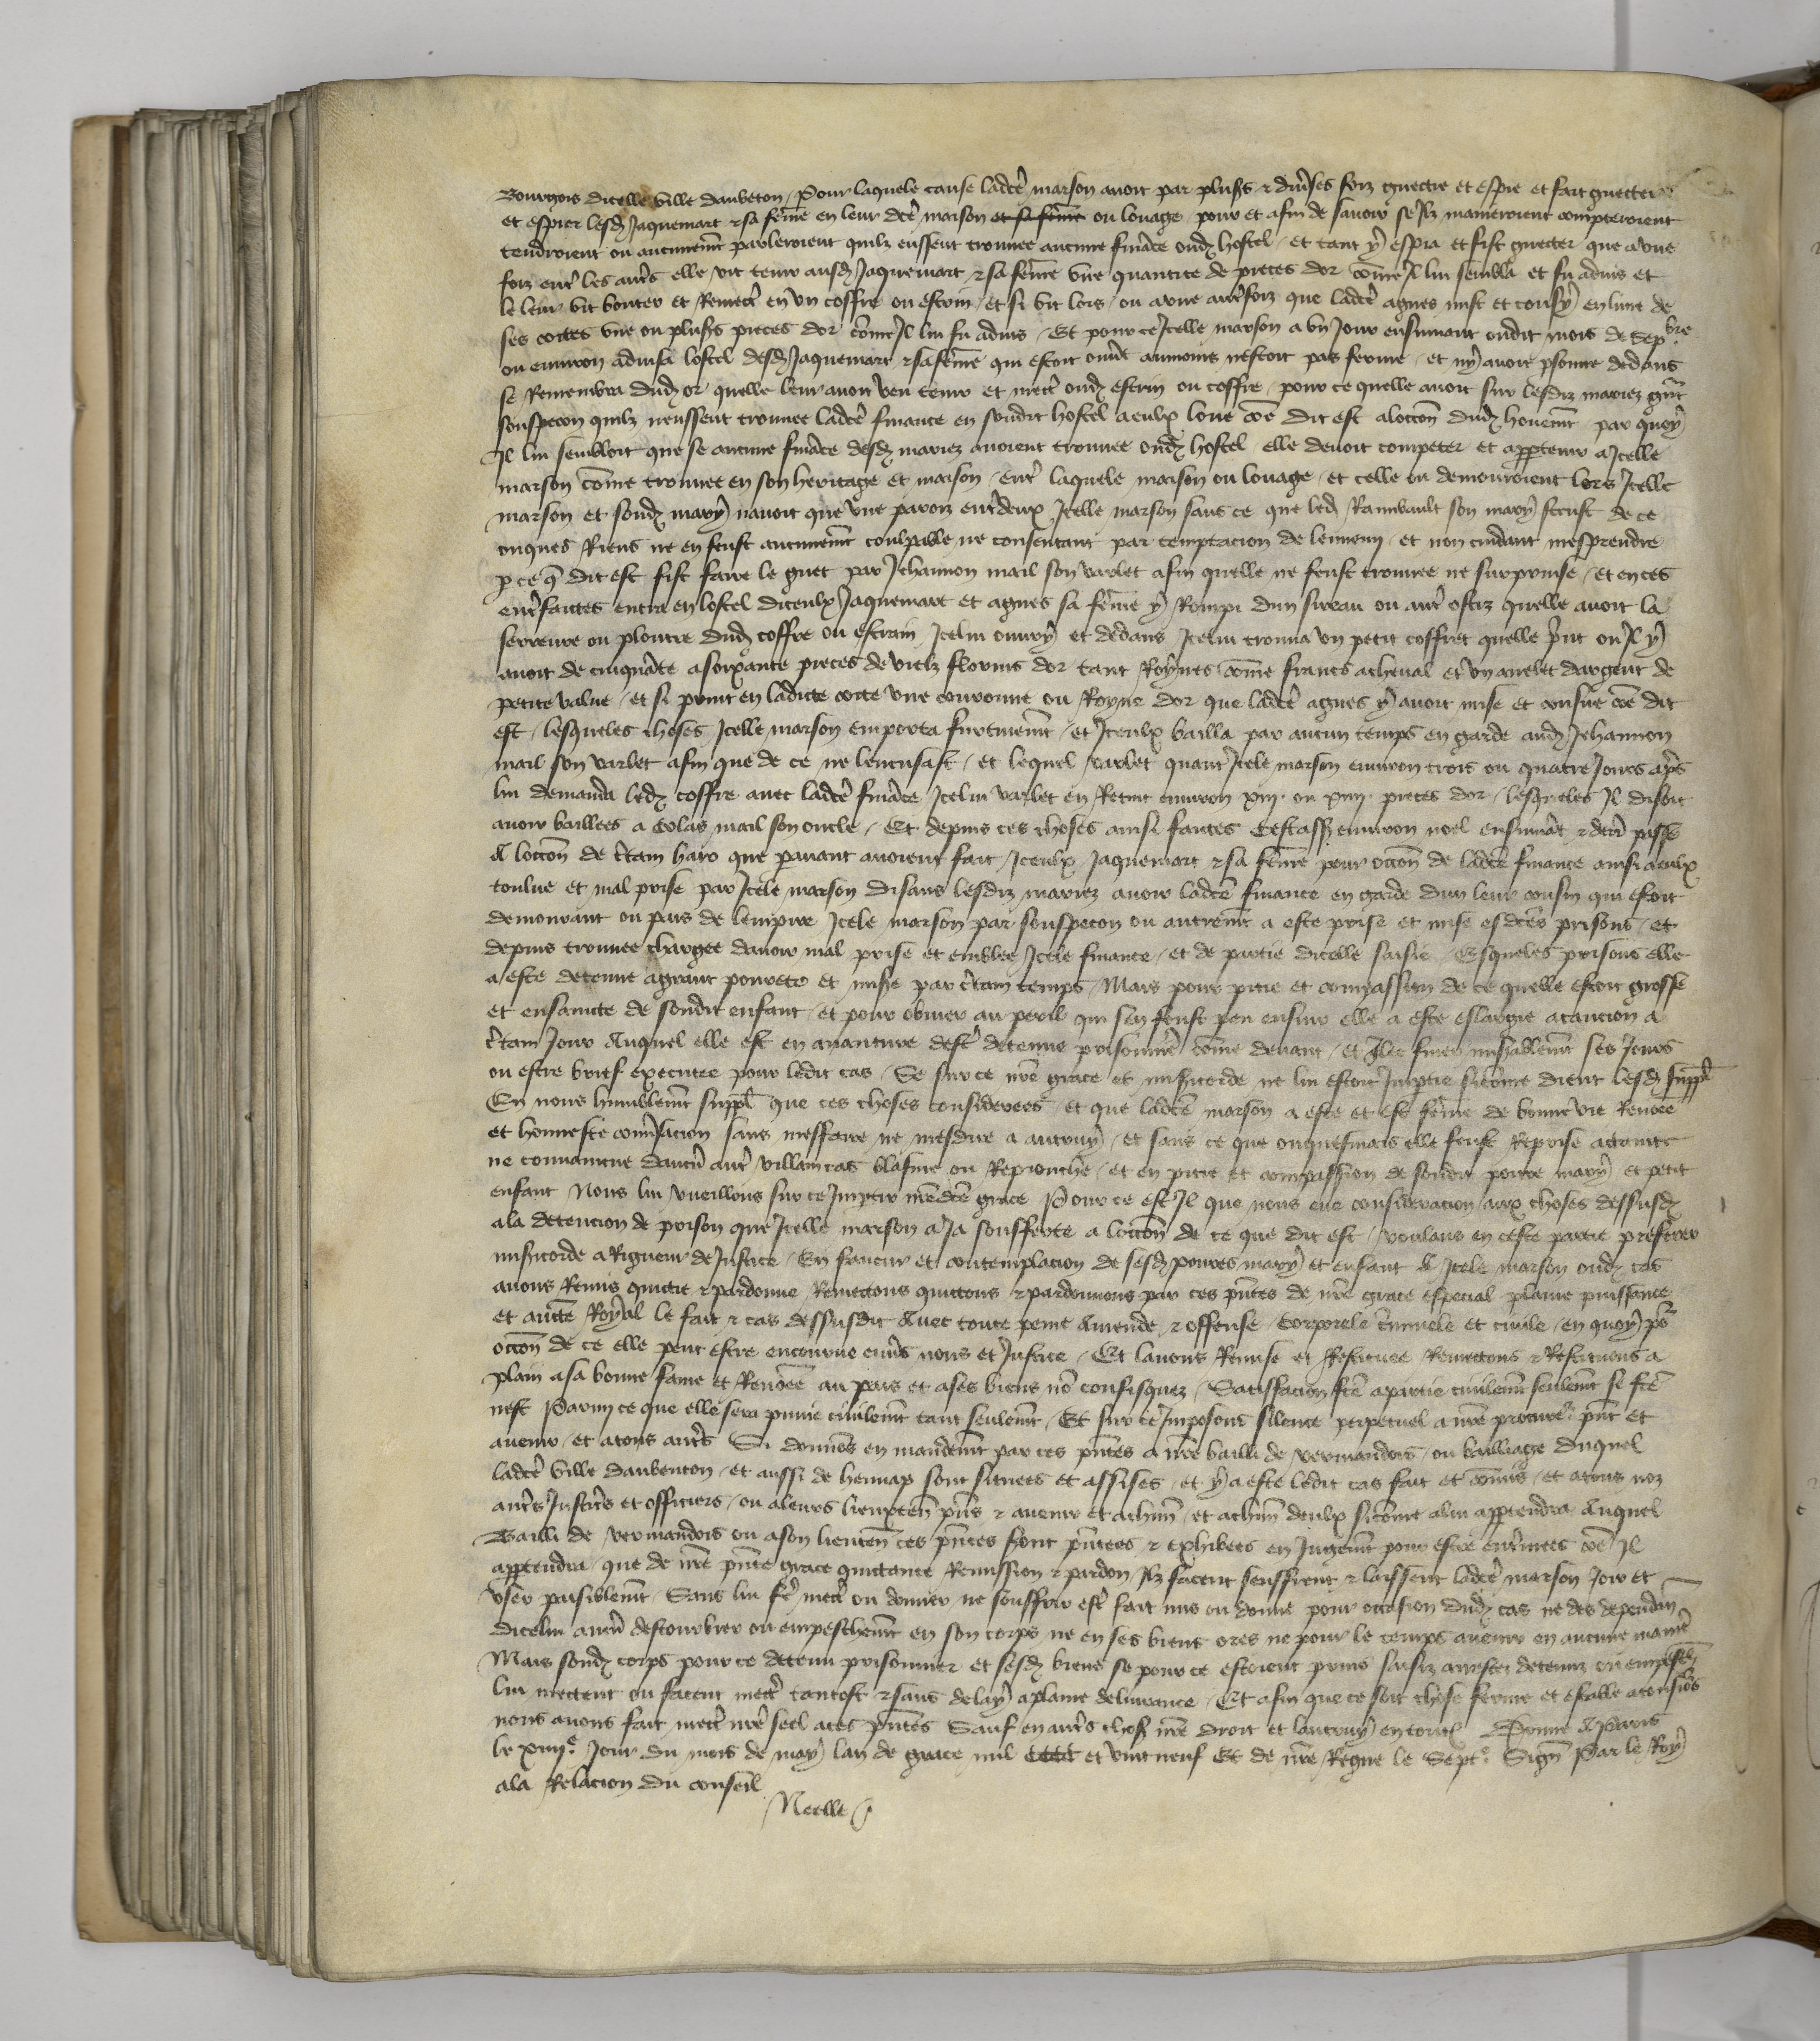 Bourgois dicelle ville daubeton / Pour laquele cause ladcē marson auoit par plusrs & diuses foiz guectie et espie et fait guectier
et espier lesdz Jaquemart & sa fēme en leur dcē maison et sa fēme ou louage pour et afin de sauoir se Ilz manieroient compteroient
tendroient ou aucunemt parleroient quilz eussent trouuee aucune fināce oudz hostel / et tant y espia et fist guecter que a vne
foiz entr les autrs elle vit tenir ausdz Jaquemart & sa fēme vne quantite de pieces dor cōme Il lui sembla et fu aduis et
le leur vit bouter et Remectr en vn coffre ou escrin / et si vit lors / ou a vne autrfoiz que ladcē agnes mist et cousy en lune de
ses cottes vne ou plusrs pieces dor cōme Il lui fu aduis / Et pour ce Icelle marson a vn Jour ensuiuant oudit mois de Sepbre
ou enuiron aduisa lostel desdz Jaquemart & sa fēme qui estoit ouūt aumoins nestoit pas ferme / et ny auoit psonne dedans
se Remembra dudz or quelle leur auoit veu tenir et mectr oudz escrin ou coffre / pour ce quelle auoit sur lesdiz mariez grāt
souspecon quilz neussent trouuee ladcē finance en sondit hostel a eulx loue cōe dit est a loccōn dudz houemt par quoy
Il lui sembloit que se aucune fināce lesdz mariez auoient trouuee oudz hostel elle deuoit competer et apptenir a Icelle
marson cōme trouuee en son heritage et maison / entr laquele maison ou louage / et celle ou demouroient lors Icelle
marson et sondz mary nauoit que vne paroiz entrdeux Icelle marson sans ce que ledz Rambault son mary sceust de ce
onques Riens ne en feust aucunemt coulpable ne consentant par temptacion de lennemy et non cuidant mesprendre
p ce q̄ dit est fist faire le guet par Jehannon mail son varlet afin quelle ne feust trouuee ne surprinse / et en ces
entrfaictes entra en lostel diceulx Jaquemart et agnes sa fēme y Rompi dun sizeau ou autr ostiz quelle auoit la
serreure ou ploutre dudz coffre ou escrain Icelui ouury et dedans Icelui trouua vn petit coffret quelle prīnt ou Il y
auoit de cinquāte a soixante pieces de vielz florins dor tant Roynes cōme francs a cheual et vn anelet dargent de
petite value / et si print en ladicte cotte vne couronne ou Royne dor que ladcē agnes y auoit mise et cousue cōe dit
est / lesqueles choses Icelle marson emporta furtiuemt / et Iceulx bailla par aucun temps en garde audz Jehannon
mail son varlet afin que de ce ne lencusast / et lequel varlet quant Icele marson enuiron trois ou quatre Jours aprs
lui demanda ledz coffre auec ladcē fināce Icelui varlet en Retint enuiron xiij. ou xiiij. pieces dor / lesqueles Il disoit
auoir baillees a Colas mail son oncle / Et depuis ces choses ainsi faictes Cestassr enuiron noel ensuiuāt & derr passe
A loccōn de crtain haro que parauant auoient fait Iceulx Jaquemart & sa fēme pour occōn de ladcē finance ainsi a eulx
toulue et mal prise par Icele marson disans lesdiz mariez auoir ladcē finance en garde dun leur cousin qui estoit
demourant ou pais de lempire Icele marson par souspecon ou autremt a este prise et mise es dcēs prisons / et
depuis trouuee chargee dauoir mal prise et emblee Icele finance / et de partie dicelle saisie / Esqueles prisons elle
a este detenue a grant pourete et misē par crtain temps / Mais pour pitie et compassion de ce quelle estoit grosse
et ensaincte de sondit enfant / et pour obuier au peril qui sen feust peu ensuir elle a este eslargie a caucion a
crtain Jour Auquel elle est en auanture destr detenue prisonnirē cōme deuant / et Ilec finer misablemt ses Jours
ou estre brief executee pour ledit cas / Se sur ce nrē grace et misicorde ne lui estoit Imptie sicōme dient lesdz suppl
En nous humblemt suppl que ces choses considerees / et que ladcē marson a este et est fēme de bonne vie Renōee
et honneste conusacion sans messaire ne mesdire a autruy / et sans ce que onquesmais elle feust Reprise actainte
ne conuaincue daucū autr villain cas blasme ou Reprouche / et en pitie et compassion de sondit poure mary et petit
enfant Nous lui vueillons sur ce Imptir nrēdcē grace Pour ce est Il que nous eue consideracion aux choses dessusdz
a la detencion de prison que Icelle marson a Ja soufferte a loccōn de ce que dit est / voulans en ceste partie preferer
misicorde a Rigueur de Justice / En faueur et contemplacion de sesdz poures mary et enfant A Icele marson oudz cas
auons Remis quictie & pardonne Remectons quictons & pardonnons par ces pn̄tes de nrē grace especial plaine puissance
et auctē Royal le fait & cas dessusdit Auec toute peine Amende & offense Corporele crīminele et ciuile / en quoy por
occōn de ce elle peut estre encourue enuīs nous et Justice / Et lauons Remise et Restituee Remectons & Restituons a
plain a sa bonne fame et Renōee au pais et a ses biens nō confisquez / Satisfacion fcē a partie ciuilemt seulemt se fcē
nest Parmy ce que elle sera punie ciuilemt tant seulemt / Et sur ce Imposons silence perpetuel a nrē procurer pn̄t et
auenir / et a tous autrs Si donnōs en mandemt par ces pn̄tes a nrē bailli de vermandois / ou bailliage duquel
ladcē ville daubenton / et aussi de hennap sont situees et assises / et y a este ledit cas fait et cōmis / et a tous noz
autrs Justicrs et officiers / ou a leurs lieuxten̄ pn̄s & auenir et a chūn / et a chūn deulx sicōme a lui apptendra Auquel
Bailli de vermandois ou a son lieuten̄ ces pn̄tes seront pn̄tees & exhibees en Jugemt pour estre entr̄inees cōe Il
apptendra / que de nrē pn̄te grace quictance Remission & pardon Ilz facent seuffrent & laissent ladcē marson Joir et
vser paisiblemt / Sans lui fr̄ mectr ou donner ne souffrir estr fait mis ou donne pour occasion dudz cas ne des dependan̄
dicelui aucū destourbier ou empeschemt en son corps ne en ses biens ores ne pour le temps auenir en aucune maniē
Mais sondz corps pour ce detenu prisonnier et sesdz biens se pour ce estoient prins saisiz arrestez detenuz ou empeschz
lui mectent ou facent mectr tantost & sans delay a plaine deliurance / Et afin que ce soit chose ferme et estable a tousiors
nous auons fait mectr nrē seel a ces pn̄tes Sauf en autrs chosz nrē droit et lautruy en toutz Donne A Paris
le xiiije Jour du mois de may lan de grace mil CCCC et vint neuf Et de nrē Regne le Septe. Signē Par le Roy
a la Relacion du conseil
Neelle